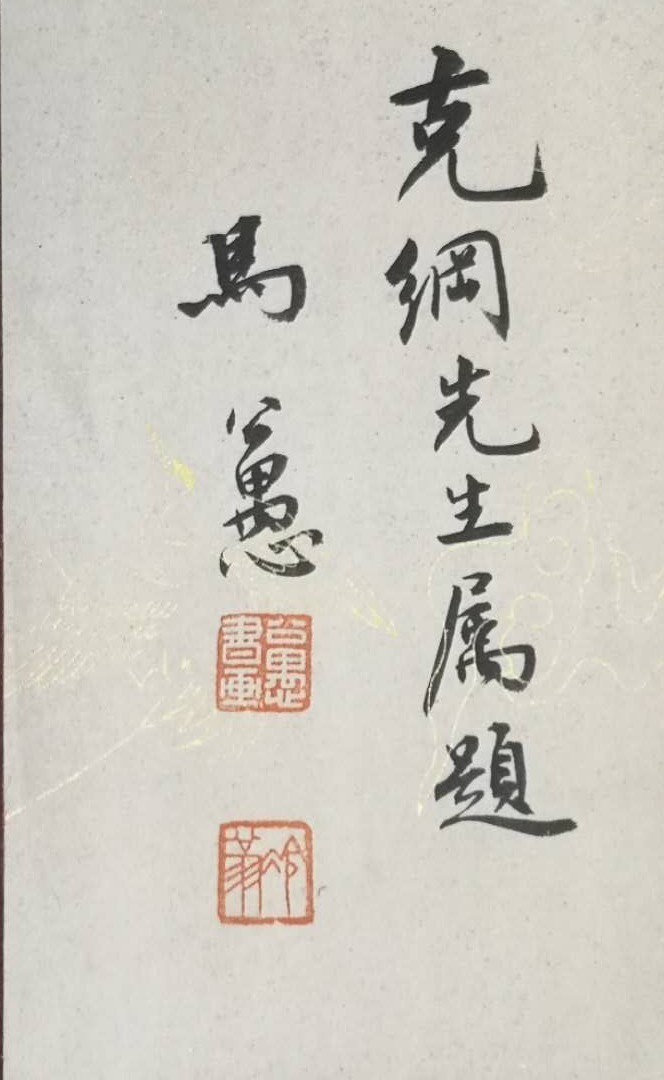 克綱先生属題
馬公愚
公愚書畫
冷翁